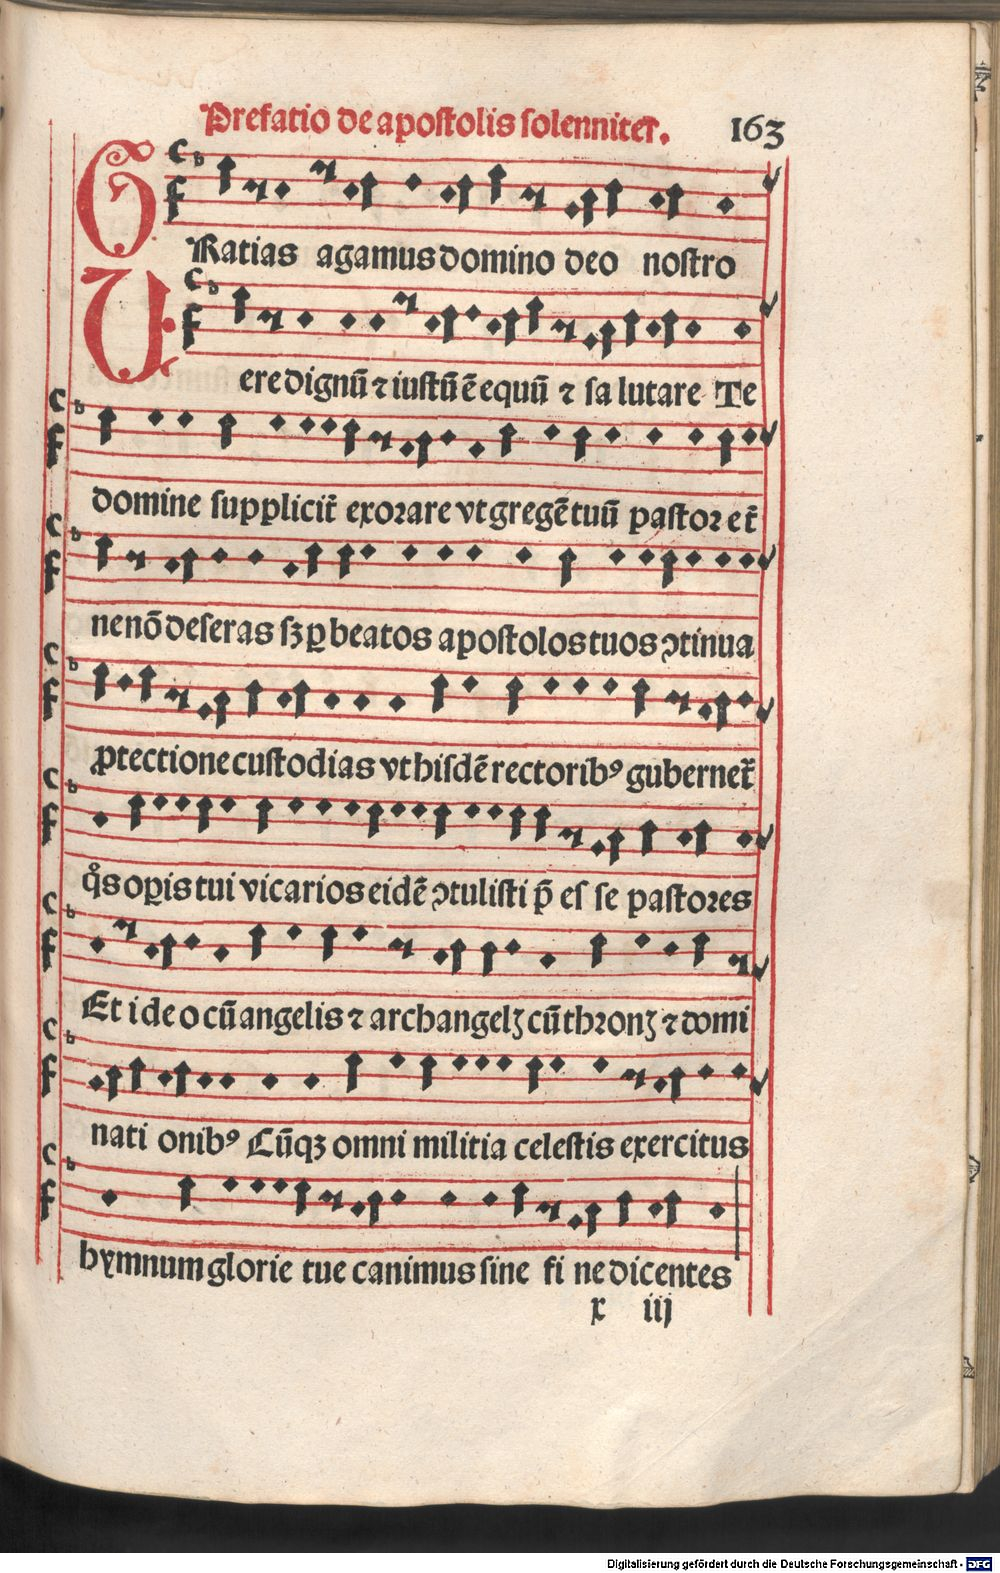 Prefatio de apostolis solenniter. 163
GRatias agamus domino deo nostro
Uere dignũ ⁊ iustũ ẽ equũ ⁊ sa lutare Te
domine suppliciť exorare vt gregẽ tuũ pastor eť
ne nõ deseras sꝫ ꝑ beatos apostolos tuos ꝯtinua
ꝓtectione custodias vt hisdẽ rectoribꝰ guberneť
q̊s oꝑis tui vicarios eidẽ ꝯtulisti p̃ es se pastores
Et i de o cũ angelis ⁊ archangelꝫ cũ thronꝫ ⁊ domi
nati onibꝰ Cũqꝫ omni militia celestis exercitus
hymnum glorie tue canimus sine fi ne dicentes
x iij
Digitalisierung gefördert durch die Deutsche Forschungsgemeinschaft - DFG